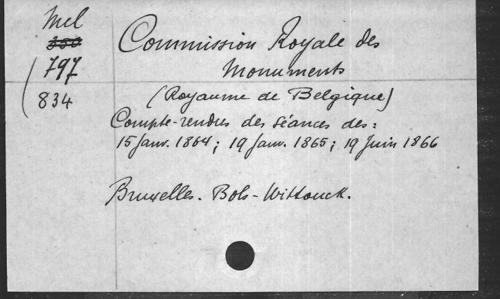 Mel
350
797
834
Commission Royale des
Monuments
(Royaume de Belgique)
Compte-rendus des séances des:
15 Janv. 1864; 19 Janv. 1865; 19 Juin 1866
Bruxelles. Bols-Wittouck.